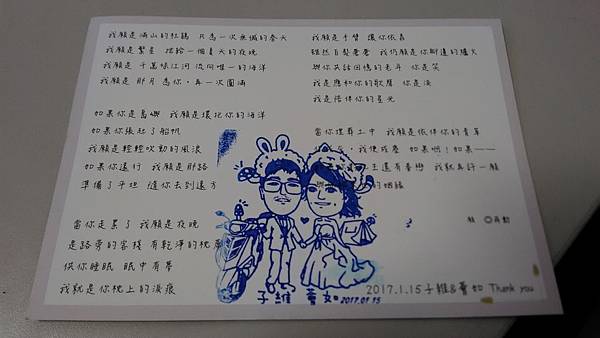 我願是滿山的杜鵑 只為一次無憾的春天
我願是繁星 捨給一個夏天的夜晚
我願是千萬條江河 流向唯一的海洋
我願是那月 為你，再一次圓滿
如果你是島嶼 我願是環抱你的海洋
如果你張起了船帆
我願是輕輕吹動的風浪
如果你遠行 我願是那路
準備了平坦 隨你去到遠方
當你走累了 我願是夜晚
是路旁的客棧 有乾淨的枕
供你睡眠 眠中有夢
我就是你枕上的淚痕
我願是手臂 讓你依靠
雖然白髮蒼蒼 我仍願是你腳邊的爐火
與你共話回憶的老年 你是笑
我是應和你的歌聲 你是淚
我是陪伴你的星光
當你埋葬土中 我願是依伴你的青草
灰，我便成塵 如果啊！如果——
生還有眷戀 我就再許一願
的姻緣
願 ◎蔣勳
子維 2017.01.15
2017.1.15子維& Thank you